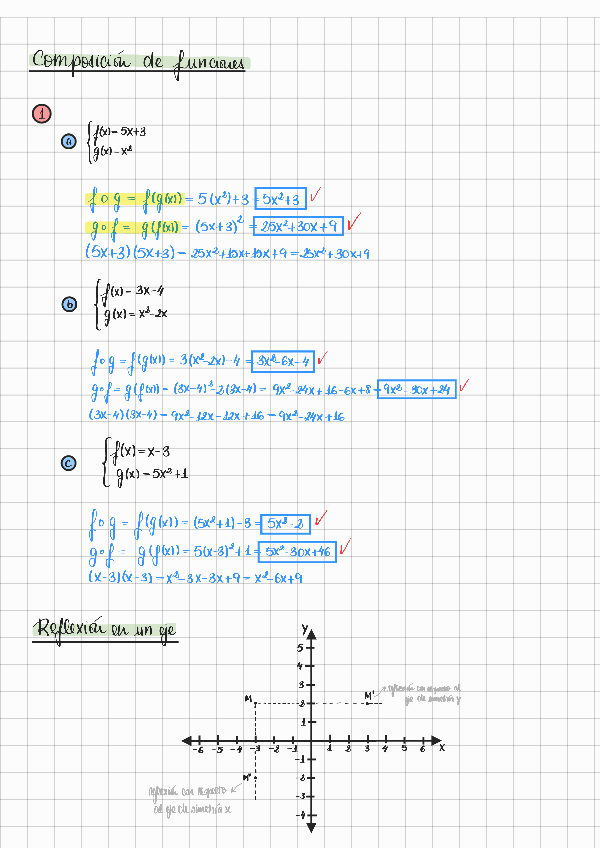 Composición de funciones
1
a
f(x) = 5x+3
g(x) = x²
f o g = f(g(x)) = 5(x²)+3 = 5x²+3 ✓
g o f = g(f(x)) = (5x+3)² = 25x²+30x+9 ✓
(5x+3)(5x+3) = 25x²+15x+15x+9 = 25x²+30x+9
b
f(x) = 3x-4
g(x) = x²-2x
f o g = f(g(x)) = 3(x²-2x)-4 = 3x²-6x-4 ✓
g o f = g(f(x)) = (3x-4)²-2(3x-4) = 9x²-24x+16-6x+8 = 9x²-30x+24 ✓
(3x-4)(3x-4) = 9x²-12x-12x+16 = 9x²-24x+16
c
f(x) = x-3
g(x) = 5x²+1
f o g = f(g(x)) = (5x²+1)-3 = 5x²-2 ✓
g o f = g(f(x)) = 5(x-3)²+1 = 5x²-30x+46 ✓
(x-3)(x-3) = x²-3x-3x+9 = x²-6x+9
Reflexión en un eje
y
5
4
3
2
1
M
M'
reflexión con respecto al
eje de simetría y
-6 -5 -4 -3 -2 -1 1 2 3 4 5 6 x
-1
-2
-3
-4
M"
reflexión con respecto
al eje de simetría x